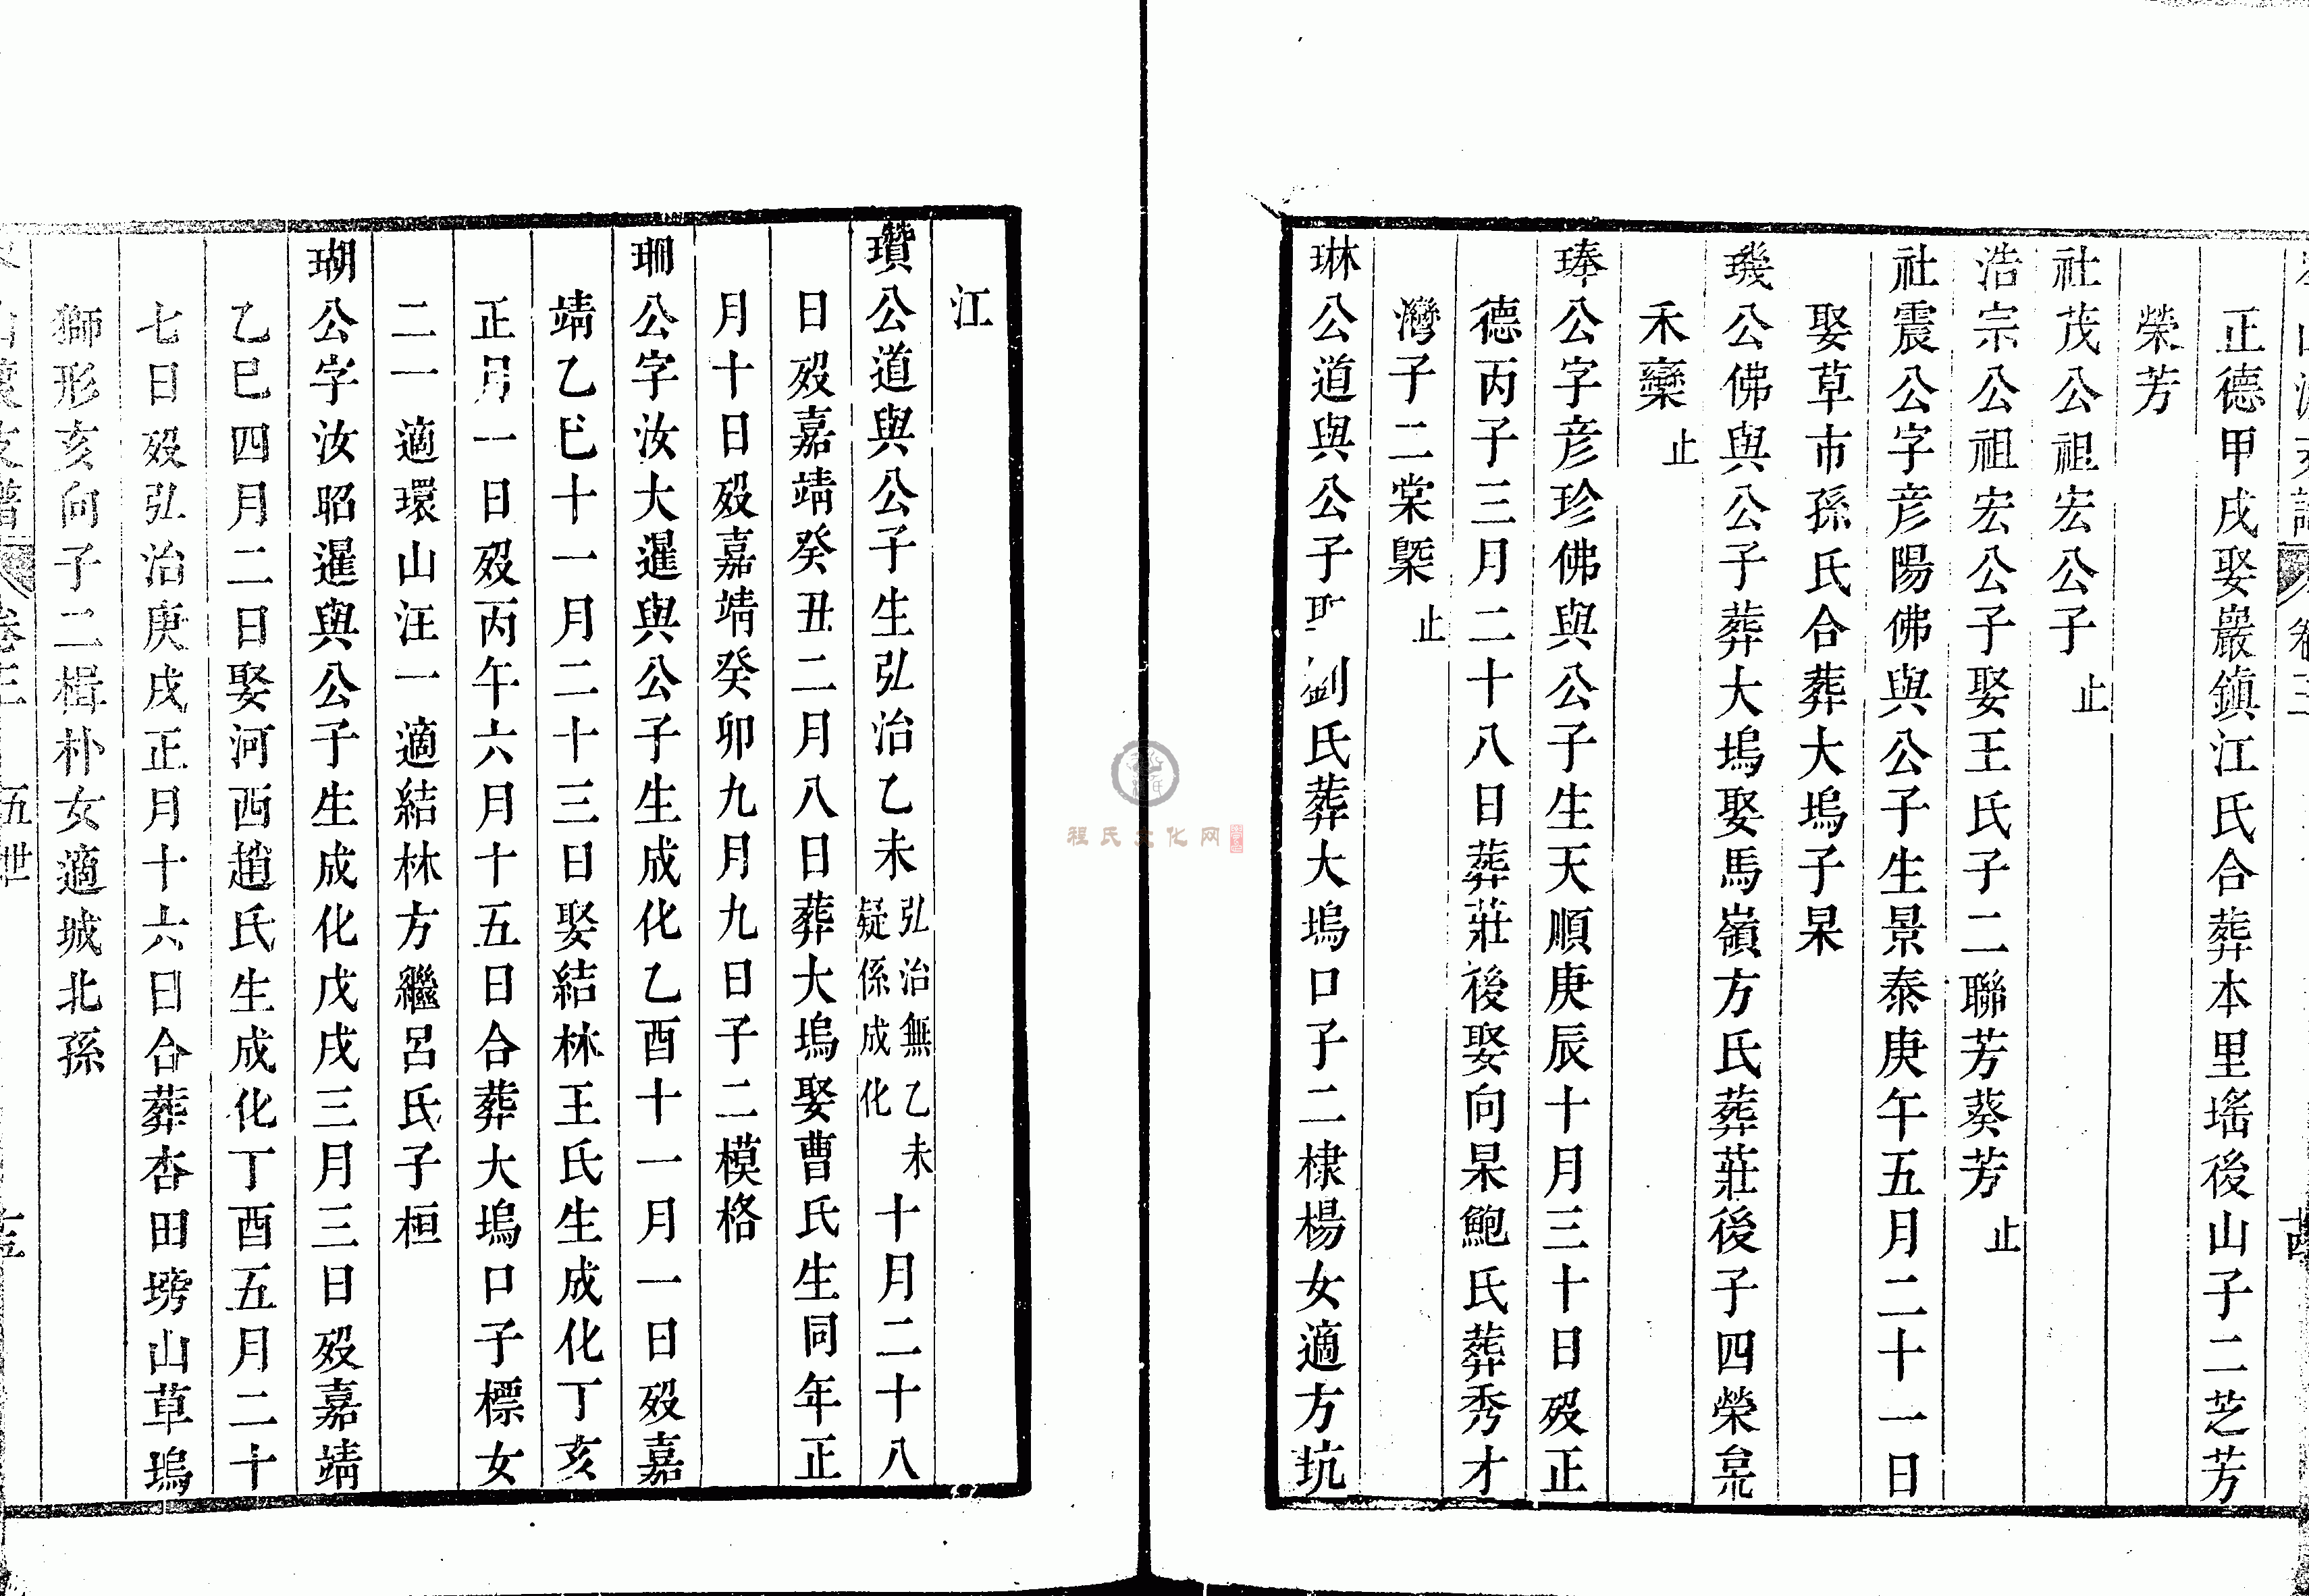 正德甲戌娶巖鎮江氏合葬本里瑤後山子二芝芳
榮芳
社茂公祖宏公子止
浩宗公祖宏公子娶王氏子二聯芳葵芳止
社震公字彥陽佛與公子生景泰庚午五月二十一日
娶草市孫氏合葬大塢子杲
璣公佛與公子葬大塢娶馬嶺方氏葬莊後子四榮
禾欒止
琫公字彥珍佛與公子生天順庚辰十月三十日歿正
德丙子三月二十八日葬莊後娶向杲鮑氏葬秀才
灣子二棠槩止
琳公道與公子 劉氏葬大塢口子二棣楊女適方坑
江
瓚公道與公子生弘治乙未弘治無乙未疑係成化十月二十八
日歿嘉靖癸丑二月八日葬大塢娶曹氏生同年正
月十日歿嘉靖癸卯九月九日子二模格
珊公字汝大暹與公子生成化乙酉十一月一日歿嘉
靖乙巳十一月二十三日娶結林王氏生成化丁亥
正月一日歿丙午六月十五日合葬大塢口子標女
二一適環山汪一適結林方繼呂氏子桓
瑚公字汝昭暹與公子生成化戊戌三月三日歿嘉靖
乙巳四月二日娶河西趙氏生成化丁酉五月二十
七日歿弘治庚戌正月十六日合葬杏田塝山草塢
獅形亥向子二楫朴女適城北孫
卷三
五世
程氏文化网